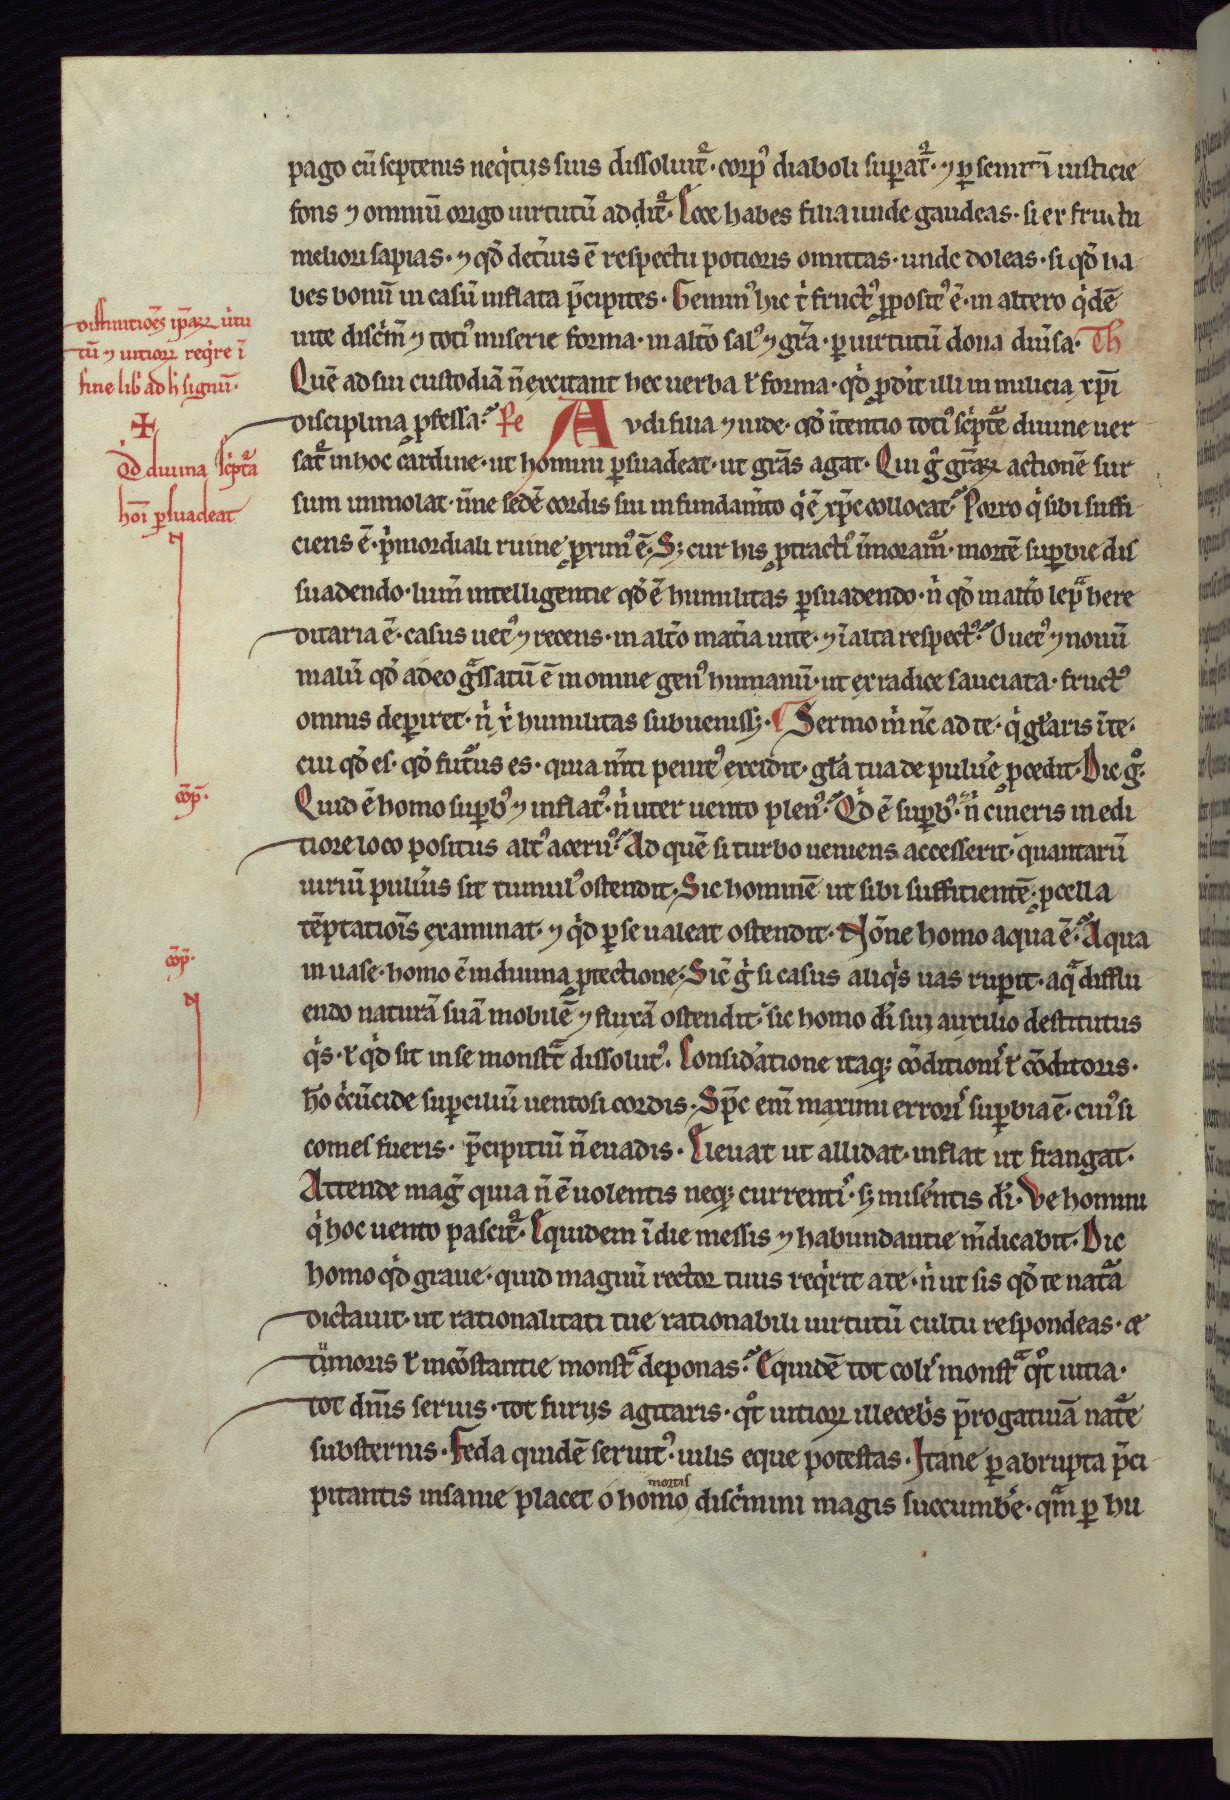 pago cū septenis neq̇tijs suis dissoluit᷑· corpꝰ diaboli suꝑat᷑· ⁊ ꝑ iusticie
fons ⁊ omniū origo uirtutū addit᷑. Ecce habes filia unde gaudeas· si ex fructu
meliori sapias· ⁊ qđ deterius ē respectu potioris omittas· unde doleas· si qđ ha
bes bonū in casū inflata p̄cipites. Geminꝰ hic ⁊ fructꝰ ꝓpositꝰ ē· in altero q̇dē
uite discͥm̄ ⁊ totiꝰ miserie forma· in alt̄o salꝰ ⁊ gr̄a· ꝑ uirtutū dona diūsa. Th
Quē ad sui custodiā n̄ excitant hec uerba ł forma· qđ ꝓdit illi in milicia xp̄i
disciplina ꝓfessa. Pe Audi filia ⁊ uide· qđ ītentio totiꝰ scͥpt̄e diuine uer
sat᷑ in hoc cardine· ut homini ꝑsuadeat· ut gr̄as agat. Qui g̊ gr̄aꝝ actionē sur
sum immolat· n̄ne sedē cordis sui in fundam̄to q̇ ē xp̄c collocat. Porro q̇ sibi suffi
ciens ē· ṗmordiali ruine ꝓximꝰ ē. Sꝫ cur his ꝓtractiꝰ īmoram᷑· mortē suꝑbie dis
suadendo· lum̄ intelligentie qđ ē humilitas ꝑsuadendo· n̄ qđ in alt̄o lepᷓ here
ditaria ē· casus uetꝰ ⁊ recens· in alt̄o mat̄ia uite· ⁊ ī alta respectꝰ. O uetꝰ ⁊ nouū
malū qđ adeo gᷓssatū ē in omne genꝰ humanū· ut ex radice sauciata· fructꝰ
omnis deꝑiret· n̄ humilitas subuenissꝫ. Sermo m̄ nc̄ ad te· q̇ gl̄aris ī te·
cui qđ es· qđ futurus es· quia m̄ti penitꝰ excidit· gl̄a tua de puluē ꝓcedit. Dic g̊·
Quid ē homo suꝑbꝰ ⁊ inflatꝰ· n̄ uter uento plenꝰ. Qd̄ ē suꝑbꝰ· n̄ cineris in edi
tiore loco positus altꝰ aceruꝰ. Ad quē si turbo ueniens accesserit· quantarū
uiriū puluis sit tumulꝰ ostendit. Sic hominē ut sibi sufficientē· ꝓcella
tēptatiois̄ examinat· ⁊ q̇d ꝑ se ualeat ostendit. Nōne homo aqua ē. Aqua
in uase· homo ē in diuina ꝓtectione. Sic̄ g̊ si casus aliq̇s uas ruꝑit· aqᷓ difflu
endo naturā suā mobilē ⁊ fluxā ostendit· sic homo di sui auxilio destitutus
q̇s· ł q̇d sit in se monstᷓt dissolutꝰ. Considatione itaqꝫ cōditionis ł cōditoris·
ho cͥcūcide suꝑciliū uentosi cordis. Sp̄c eni maximi erroris suꝑbia ē· cuiꝰ si
comes fueris· p̄cipitiū n̄ euadis. Eleuat ut allidat· inflat ut frangat.
Attende mag̊ quia n̄ ē uolentis neqꝫ currentis· sꝫ misentis di. Ve homini
q̇ hoc uento pascit᷑. Equidem ī die messis ⁊ habundantie m̄dicabit. Dic
homo q̇d graue· quid magnū rector tuus req̇rit a te· n̄ ut sis qđ te natᷓa
dictauit· ut rationalitati tue rationabili uirtutū cultu respondeas· ⁊
timoris ł incōstantie monstᷓ deponas. Equidē tot colis monstᷓ qͦt uitia·
tot dn̄is seruis· tot furijs agitaris· qͦt uitioꝝ illecebris p̄rogatiuā natᷓe
substernis. Feda quidē seruitꝰ· uilis eque potestas. Itane ꝑ abrupta p̄ci
pitantis insanie placet o homo mortalis discͥmini magis succumbe· qᷓm ꝑ hu
diffinitiōes ip̄aꝝ uirtu
tū ⁊ uitioꝝ req̇re ī
fine libri ad h̄ signū·
Qd diuina scͥptᷓa
hoī ꝑsuadeat
cōp·
cōp·